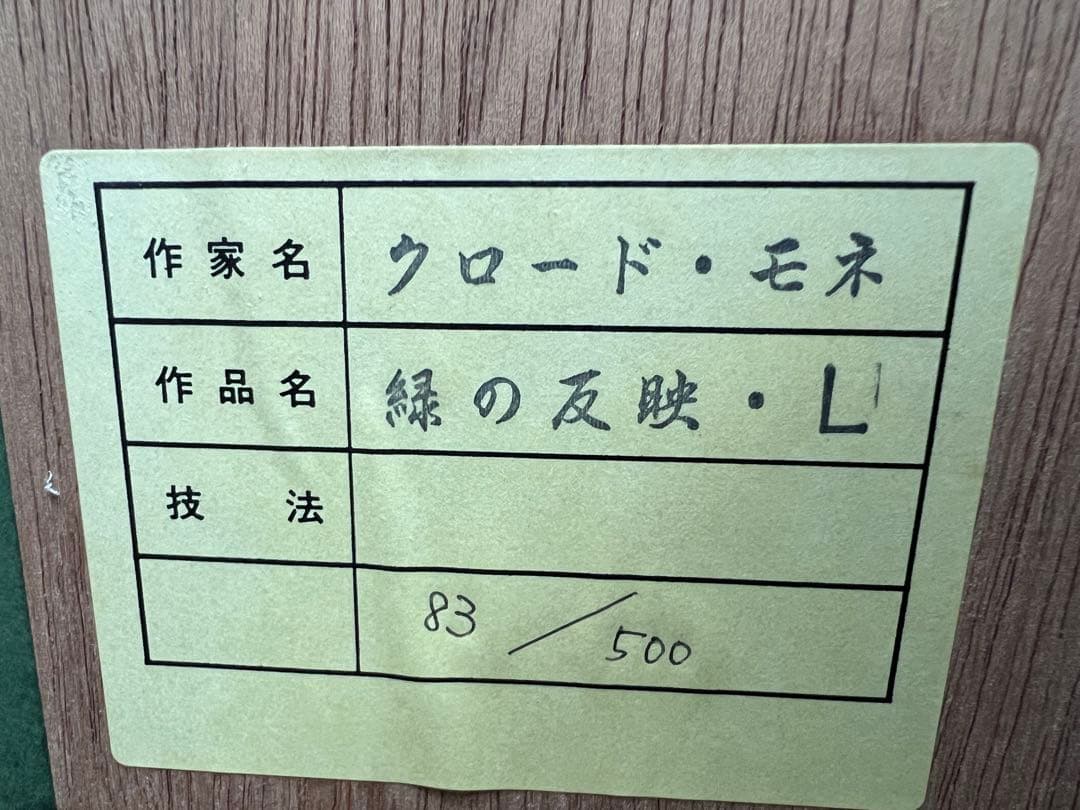 作家名 クロード・モネ
作品名 緑の反映・L
技法
83/500